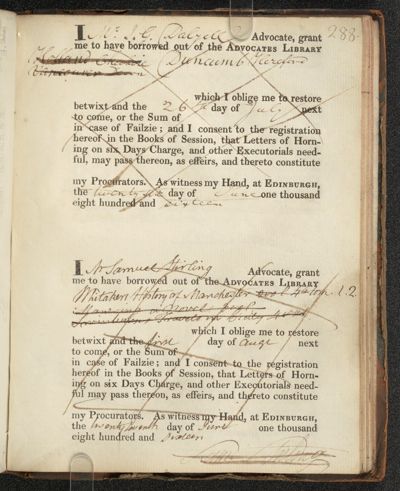 288
I Mr J. G. Dalzell Advocate, grant
me to have borrowed out of the ADVOCATES LIBRARY
Duncumb Hereford
which I oblige me to restore
betwixt and the 26 day of July next
to come, or the Sum of
in case of Failzie; and I consent to the registration
hereof in the Books of Session, that Letters of Horn-
ing on six Days Charge, and other Executorials need-
ful, may pass thereon, as effeirs, and thereto constitute
my Procurators. As witness my Hand, at EDINBURGH,
the day of June one thousand
eight hundred and sixteen
I Mr Samuel Girling Advocate, grant
me to have borrowed out of the ADVOCATES LIBRARY
Whitakers History of Manchester 2 vols 4to 1.2
which I oblige me to restore
betwixt and the first day of Augt next
to come, or the Sum of
in case of Failzie; and I consent to the registration
hereof in the Books of Session, that Letters of Horn-
ing on six Days Charge, and other Executorials need-
ful, may pass thereon, as effeirs, and thereto constitute
my Procurators. As witness my Hand, at EDINBURGH,
the day of June one thousand
eight hundred and sixteen